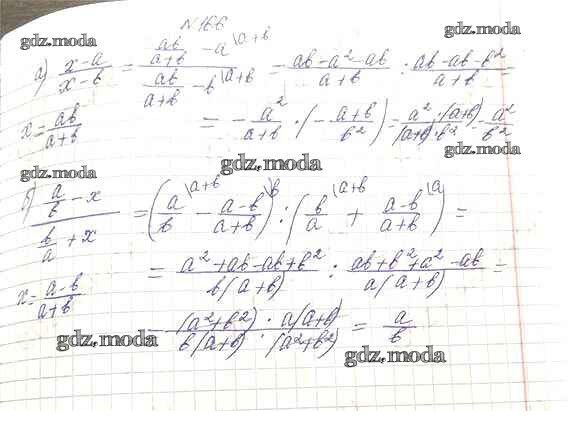 N 166
gdz.moda
gdz.moda
а) (x-a)/(x-b) = (ab/(a+b) - a \a+b)/(ab/(a+b) - b \a+b) = (ab-a²-ab)/(a+b) : (ab-ab-b²)/(a+b) =
x = ab/(a+b)
= - a²/(a+b) · (- (a+b)/b²) = a²·(a+b)/((a+b)·b²) = a²/b²
gdz.moda
gdz.moda
gdz.moda
б) (a/b - x)/(b/a + x) = (a/b \a+b - (a-b)/(a+b) \b) : (b/a \a+b + (a-b)/(a+b) \a) =
x = (a-b)/(a+b)
= (a²+ab-ab+b²)/(b(a+b)) : (ab+b²+a²-ab)/(a(a+b)) =
(a²+b²) · a(a+b)/(b(a+b) · (a²+b²)) = a/b
gdz.moda
gdz.moda